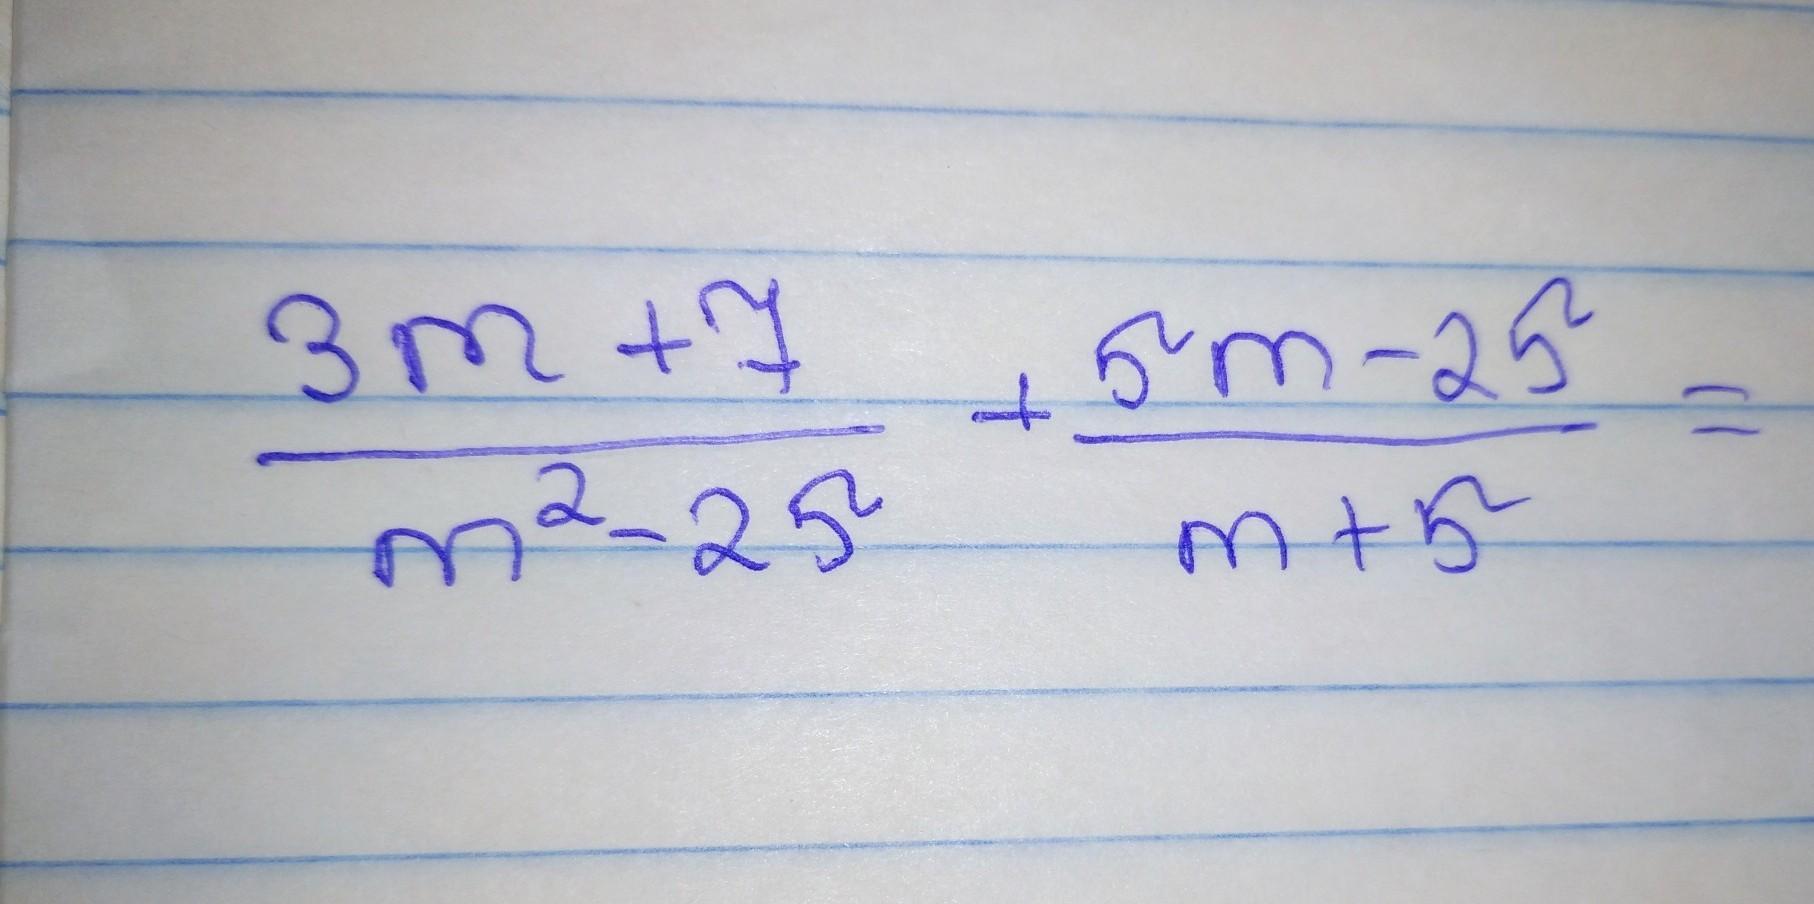 3m + 7 / m² - 25 + 5m - 25 / m + 5 =